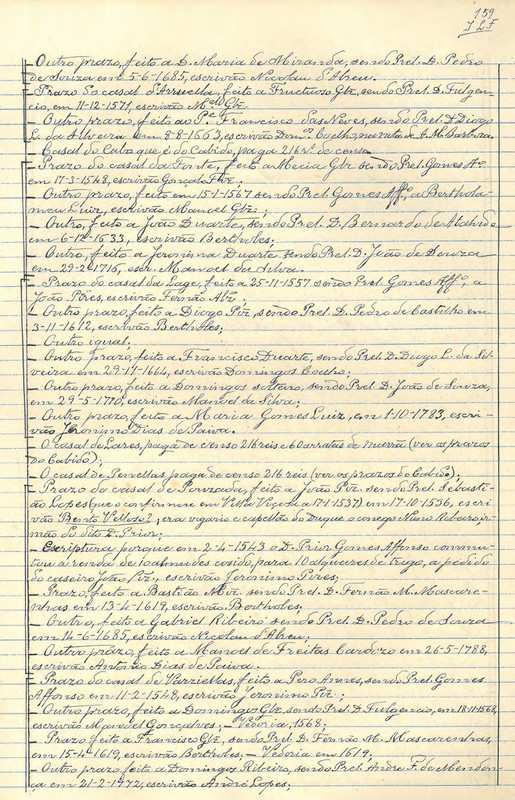 159
I.L.F
– Outro prazo, feito a D. Maria de Miranda, sendo Prel. D. Pedro
de Souza em 5-6-1685, escrivão Nicolau d'Abreu.
– Prazo do casal d'Arruella, feito a Fructuozo Glz, sendo Prel. D. Fulgen-
cio, em 11-12-1571, escrivão Mel Glz.
– Outro prazo, feito ao Pe. Francisco das Neves, sendo Prel. D. Diogo
L. da Silveira em 8-8-1663, escrivão Domos Coelho,
Casal do Cabo que é do Cabido, paga 216 rs. de censo.
– Prazo do casal da Fonte, feito a Mecia Glz sendo Prel. Gomes Ao
em 17-3-1548, escrivão Gonçalo
– Outro prazo, feito em 15-1-1567 sendo Prel. Gomes Affo, a Bertola-
meu Luiz, escrivão Manoel Glz;
– Outro, feito a João Duarte, sendo Prel. D. Bernardo de Athahide
em 6-12-1633, escrivão Bertholes;
– Outro, feito a Jeronima Duarte sendo Prel. D. João de Souza
em 29-2-1716, escr. Manoel da Silva.
– Prazo do casal da Lage, feito a 25-11-1557 sendo Prel. Gomes Affo, a
João Pires, escrivão Fernão Alz;
– Outro prazo, feito a Diogo Piz, sendo Prel. D. Pedro de Castilho em
3-11-1612, escrivão Bertholes;
– Outro igual;
– Outro prazo, feito a Francisco Duarte, sendo Prel. D. Diogo L. da Sil-
veira em 29-11-1664, escrivão Domingos Coelho;
– Outro prazo, feito a Domingos Alvaro, sendo Prel. D. João de Souza,
em 29-5-1710, escrivão Manoel da Silva;
– Outro prazo, feito a Maria Gomes Luiz, em 1-10-1783, escri-
vão Jeronimo Dias de Paiva.
– O casal de Lares, paga de censo 216 reis e 60 arrateis de marrã (ver os prazos
do Cabido);
– O casal de Penellas paga de censo 216 reis (ver os prazos do Cabido);
– Prazo do casal de Pouzada, feito a João Piz sendo Prel. Sebasti-
ão Lopes (que o confirmou em Villa Viçosa a 17-1-1537) em 17-10-1536, escri-
vão Bento Velloso?; era vigario e capellão do Duque o conego Nuno Ribeiro ir-
mão do dito D. Prior;
– Escriptura porque em 2-4-1543 o D. Prior Gomes Affonso commu-
tou a renda de 10 almudes cosido, para 10 alqueires de trigo, a pedido
do caseiro João Piz, escrivão Jeronimo Pires;
– Prazo, feito a Bastião Miz sendo Prel. D. Fernão M. Mascare-
nhas em 13-4-1619, escrivão Bertholes;
– Outro, feito a Gabriel Ribeiro sendo Prel. D. Pedro de Souza
em 14-6-1685, escrivão Nicolau d'Abreu;
– Outro prazo, feito a Manoel de Freitas Cardozo em 26-5-1788,
escrivão Antonio Dias de Paiva.
– Prazo do casal de Varziellas, feito a Pero Annes, sendo Prel. Gomes
Affonso em 11-2-1548, escrivão Jeronimo Piz;
– Outro prazo, feito a Domingos Glz, sendo Prel. D. Fulgencio, em 18-11-1568,
escrivão Manoel Gonçalves; – Vedoria, 1568;
– Prazo feito a Francisco Glz, sendo Prel. D. Fernão M. Mascarenhas,
em 15-4-1619, escrivão Bertholes; – Vedoria em 1619;
– Outro prazo, feito a Domingos Ribeiro, sendo Prel. Andre F. de Mendon-
ça em 21-2-1972, escrivão André Lopes;